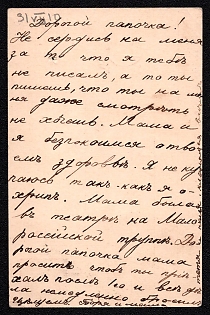 Дорогой папочка!
Не сердись на меня
за то что я тебѣ
не писалъ, а то ты
пишешь, что ты на ме
ня даже смотрѣть
не хочешь. Мама и
я безпокоимся о тво
емъ здоровьѣ. Я не ку
паюсь такъ какъ я о
хрипъ. Мама была
въ театрѣ на Мало
россійской труппѣ. До
рогой папочка мама
проситъ чтобъ ты прі
халъ послѣ 10 и всѣ
немедленно
цѣлуемъ